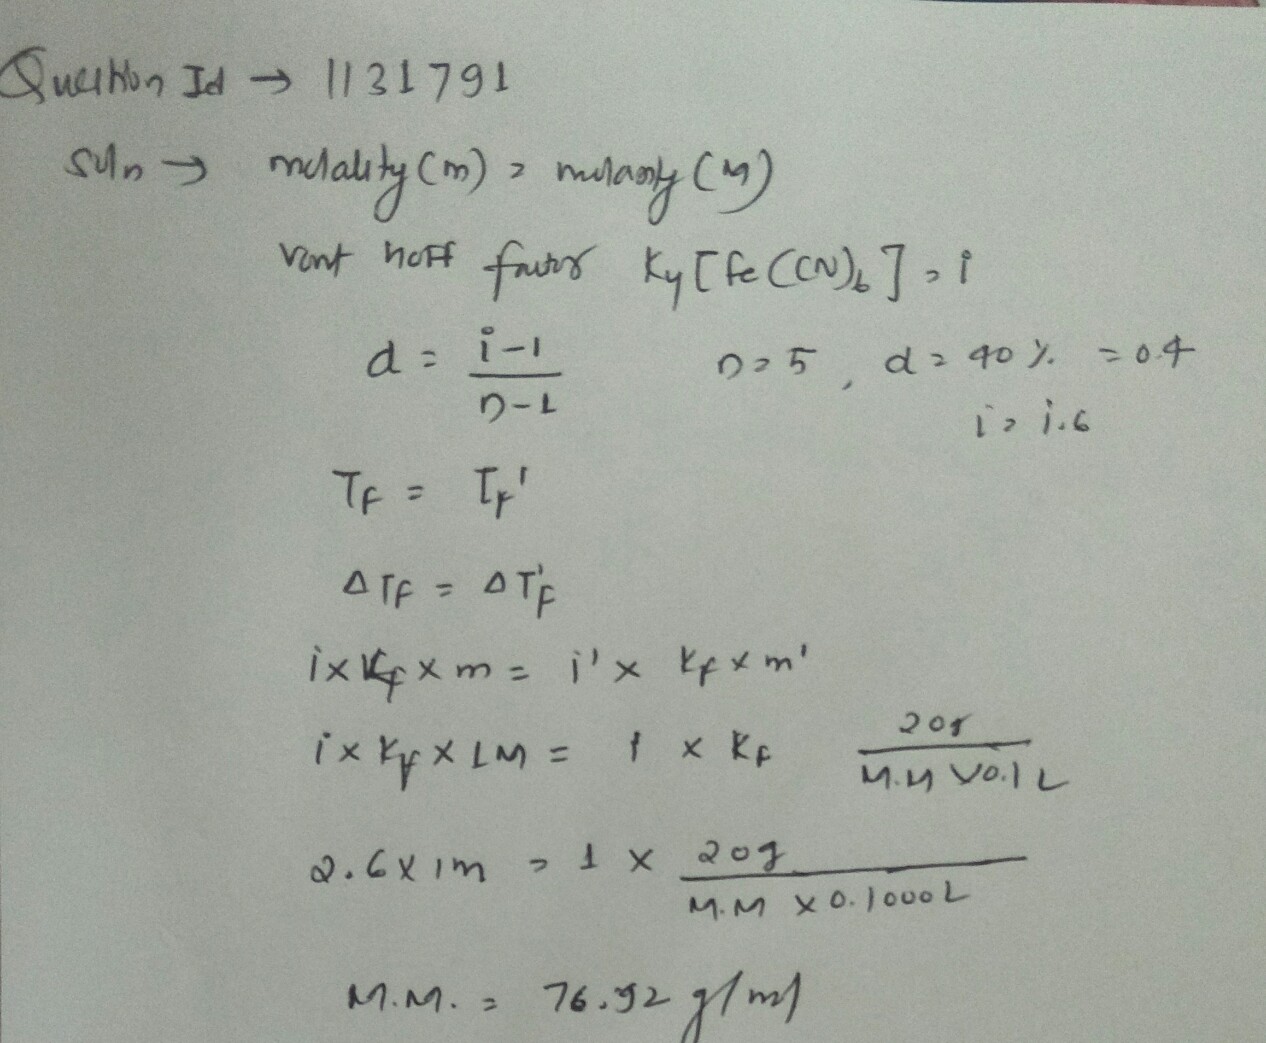 Question Id → 1131791
Soln → molality (m) = molarity (M)
Vant hoff factor K4[Fe(CN)6] = i
d = i-1 / n-1 n=5, d = 40 % = 0.4
i = 1.6
TF = TF'
ΔTF = ΔT'F
i x Kf x m = i' x Kf x m'
i x Kf x 1M = 1 x Kf 20g / M.M x 0.1 L
2.6 x 1m = 1 x 20g / M.M x 0.1000L
M.M. = 76.92 g/mol